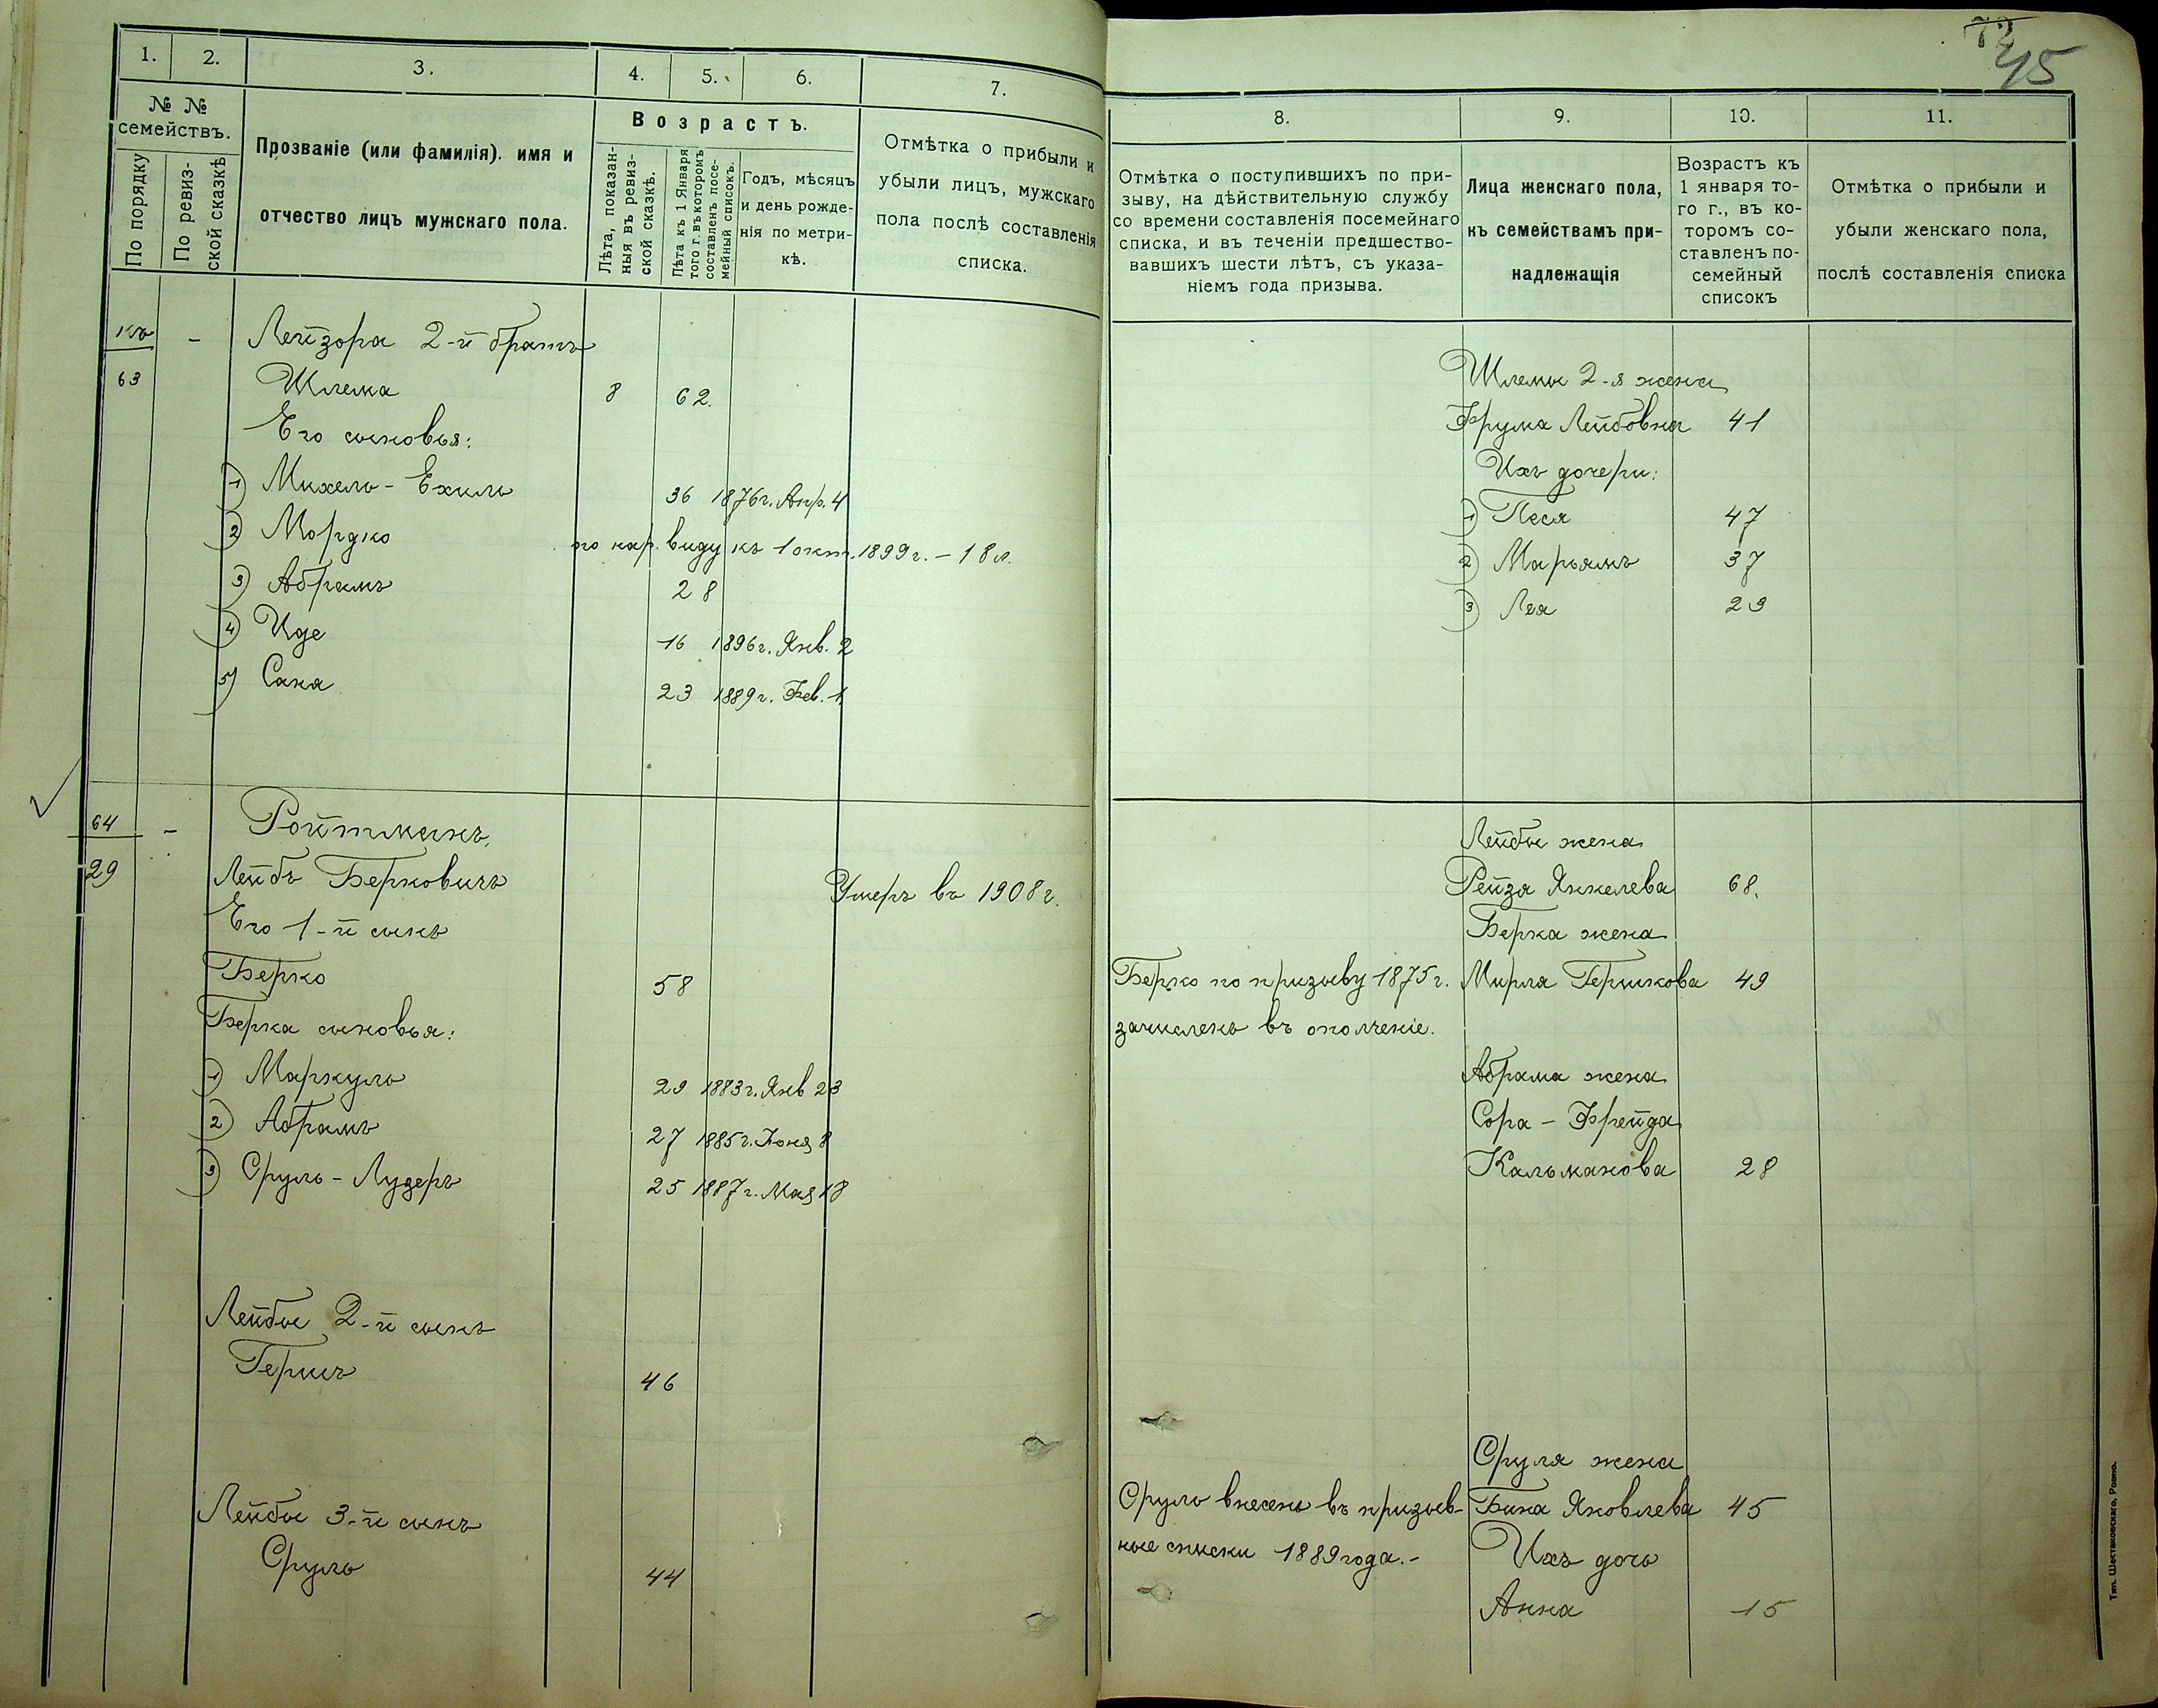 73
45
1.
2.
3.
4.
5.
6.
7.
№ №
семействъ.
По порядку
По ревиз-
ской сказкѣ
Прозваніе (или фамилія). имя и
отчество лицъ мужскаго пола.
Возрастъ.
Лѣта, показан-
ныя въ ревиз-
ской сказкѣ.
Лѣта къ 1 Января
того г. въ которомъ
составленъ посе-
мейный списокъ.
Годъ, мѣсяцъ
и день рожде-
нія по метри-
кѣ.
Отмѣтка о прибыли и
убыли лицъ, мужскаго
пола послѣ составленія
списка.
къ
63
-
Лейзора 2-й братъ
Шлема 8 62.
Его сыновья:
1) Михель-Ехиль 36 1876г. Апр. 4
2) Мордко по нар. виду къ 1 окт. 1899г. - 18 л.
3) Абрамъ 28
4) Иде 16 1896г. Янв. 2
5) Сака 23 1889г. Фев. 1
64
29
-
Ройтманъ,
Лейбъ Берковичъ Умеръ въ 1908г.
Его 1-й сынъ
Берко 58
Берка сыновья:
1) Маркуль 29 1883г. Янв 23
2) Абрамъ 27 1885г. Іюня 8
3) Сруль-Лузеръ 25 1887г. Мая 18
Лейбы 2-й сынъ
Гершъ 46
Лейбы 3-й сынъ
Сруль 44
8.
9.
10.
11.
Отмѣтка о поступившихъ по при-
зыву, на дѣйствительную службу
со времени составленія посемейнаго
списка, и въ теченіи предшество-
вавшихъ шести лѣтъ, съ указа-
ніемъ года призыва.
Лица женскаго пола,
къ семействамъ при-
надлежащія
Возрастъ къ
1 января то-
го г., въ ко-
торомъ со-
ставленъ по-
семейный
списокъ
Отмѣтка о прибыли и
убыли женскаго пола,
послѣ составленія списка
Шлемы 2-я жена
Фрума Лейбовна 41
Ихъ дочери:
1) Песя 47
2) Марьямъ 37
3) Лея 29
Лейбы жена
Рейзя Янкелева 68.
Берка жена
Берко по призыву 1875г. Мирля Гершкова 49
зачисленъ въ ополченіе.
Абрама жена
Сора - Фрейда
Кальманова 28
Сруля жена
Сруль внесенъ въ призыв- Бина Яковлева 45
ные списки 1889 года.- Ихъ дочь
Анна 15
Тип. Шестаковскаго, Ровно.